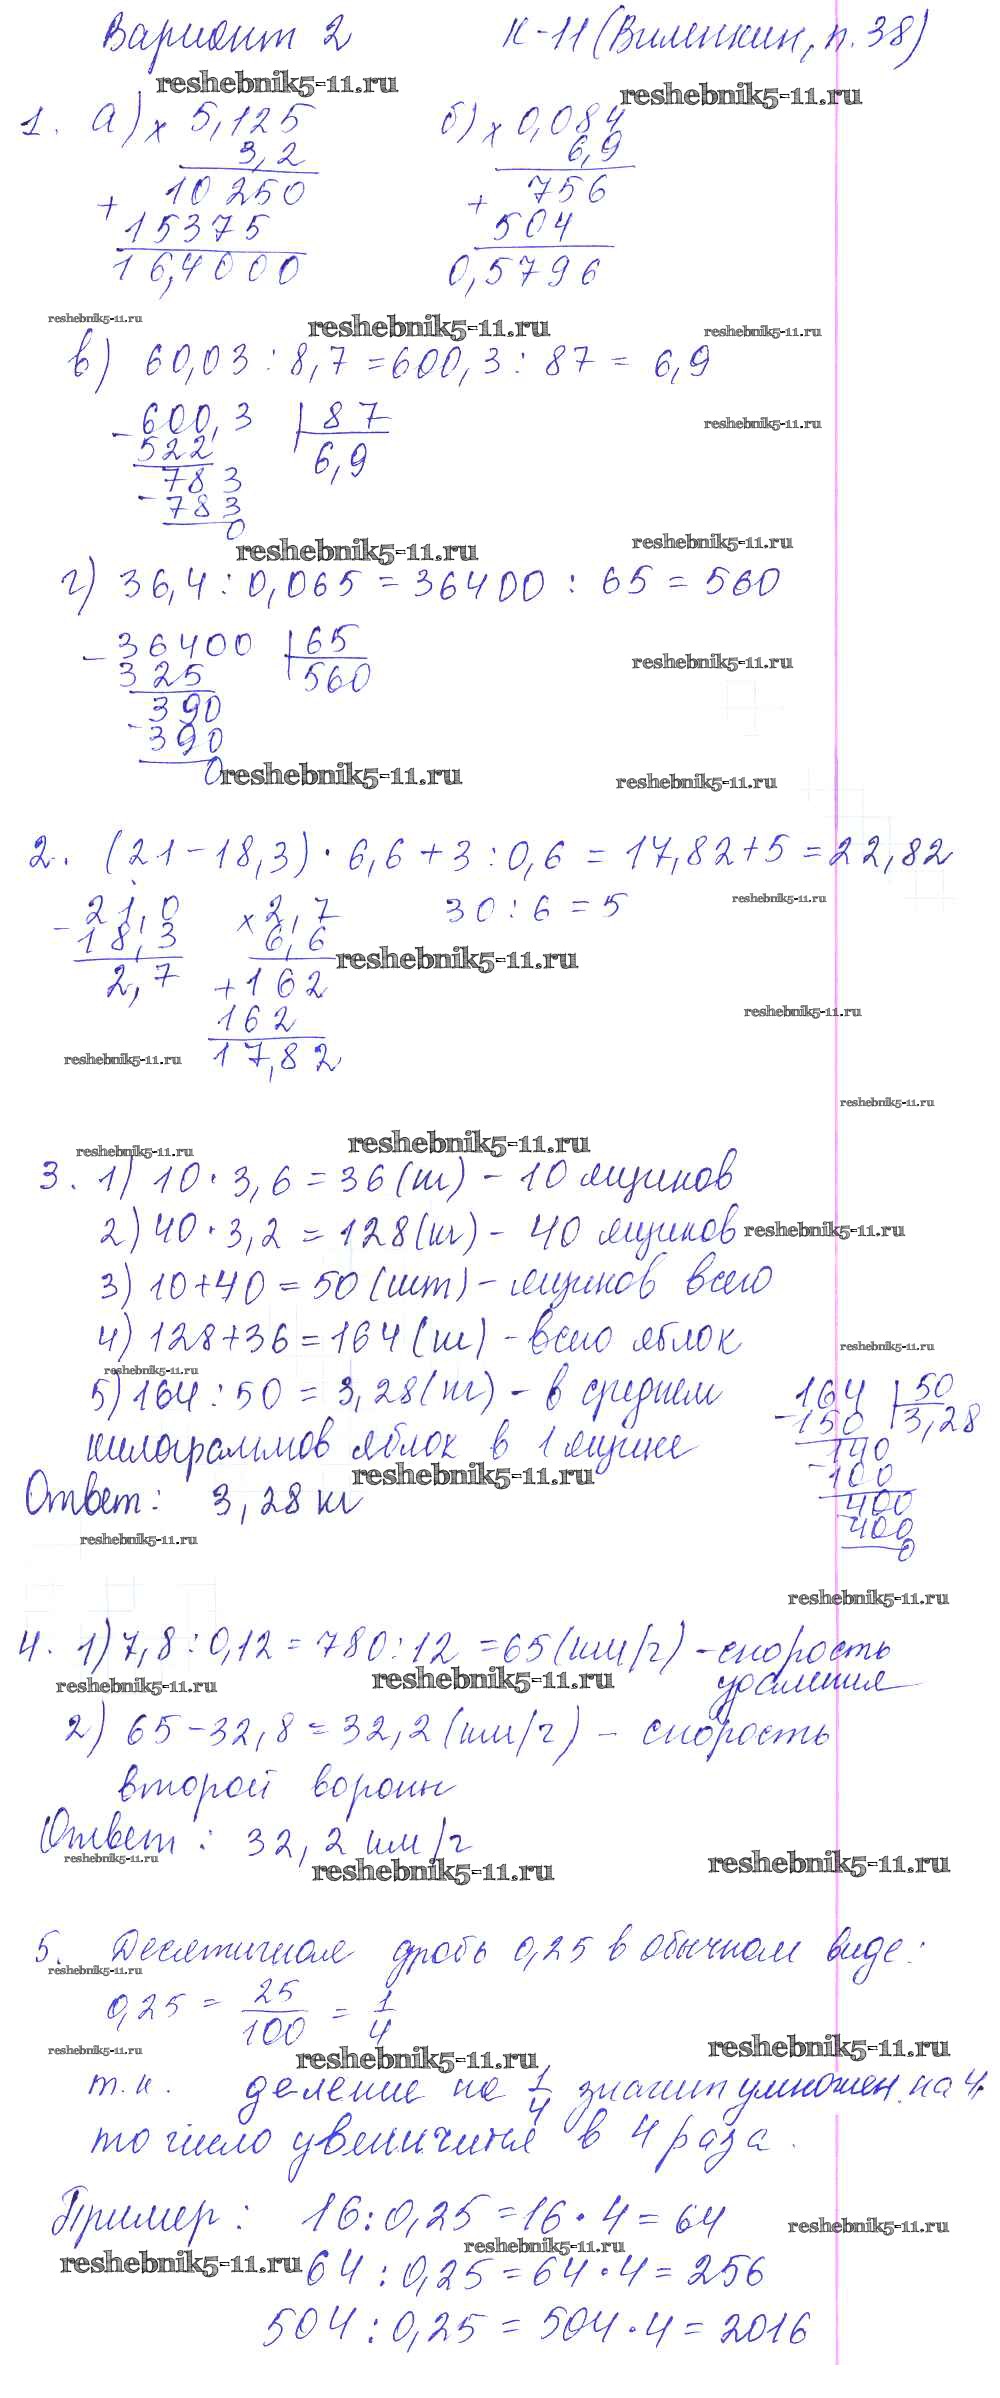 Вариант 2 К-11 (Виленкин, п. 38)
reshebnik5-11.ru reshebnik5-11.ru
1. а) × 5,125 б) × 0,084
3,2 6,9
10250 + 756
+ 15375 504
16,4000 0,5796
reshebnik5-11.ru reshebnik5-11.ru reshebnik5-11.ru
в) 60,03 : 8,7 = 600,3 : 87 = 6,9
- 600,3 | 87
reshebnik5-11.ru
522 6,9
783
- 783
0
reshebnik5-11.ru reshebnik5-11.ru
г) 36,4 : 0,065 = 36400 : 65 = 560
- 36400 | 65
325 560
reshebnik5-11.ru
390
- 390
0
reshebnik5-11.ru reshebnik5-11.ru
2. (21 - 18,3) · 6,6 + 3 : 0,6 = 17,82 + 5 = 22,82
- 21,0 × 2,7 30 : 6 = 5
reshebnik5-11.ru
18,3 6,6
reshebnik5-11.ru
2,7 + 162
162
reshebnik5-11.ru
17,82
reshebnik5-11.ru
reshebnik5-11.ru
reshebnik5-11.ru reshebnik5-11.ru
3. 1) 10 · 3,6 = 36 (кг) - 10 ящиков
2) 40 · 3,2 = 128 (кг) - 40 ящиков
reshebnik5-11.ru
3) 10 + 40 = 50 (шт) - ящиков всего
4) 128 + 36 = 164 (кг) - всего яблок
reshebnik5-11.ru
reshebnik5-11.ru
5) 164 : 50 = 3,28 (кг) - в среднем
килограммов яблок в 1 ящике
- 164 | 50
150 3,28
140
- 100
400
400
0
reshebnik5-11.ru
Ответ: 3,28 кг
reshebnik5-11.ru
reshebnik5-11.ru
4. 1) 7,8 : 0,12 = 780 : 12 = 65 (км/ч) - скорость
удаления
reshebnik5-11.ru reshebnik5-11.ru
2) 65 - 32,8 = 32,2 (км/ч) - скорость
второй вороны
Ответ: 32,2 км/ч
reshebnik5-11.ru reshebnik5-11.ru reshebnik5-11.ru
5. Десятичная дробь 0,25 в обычном виде:
reshebnik5-11.ru
0,25 = 25/100 = 1/4
reshebnik5-11.ru reshebnik5-11.ru reshebnik5-11.ru
т.к. деление на 1/4 значит умножен. на 4,
то число увеличится в 4 раза.
Пример: 16 : 0,25 = 16 · 4 = 64
reshebnik5-11.ru
reshebnik5-11.ru reshebnik5-11.ru
64 : 0,25 = 64 · 4 = 256
504 : 0,25 = 504 · 4 = 2016